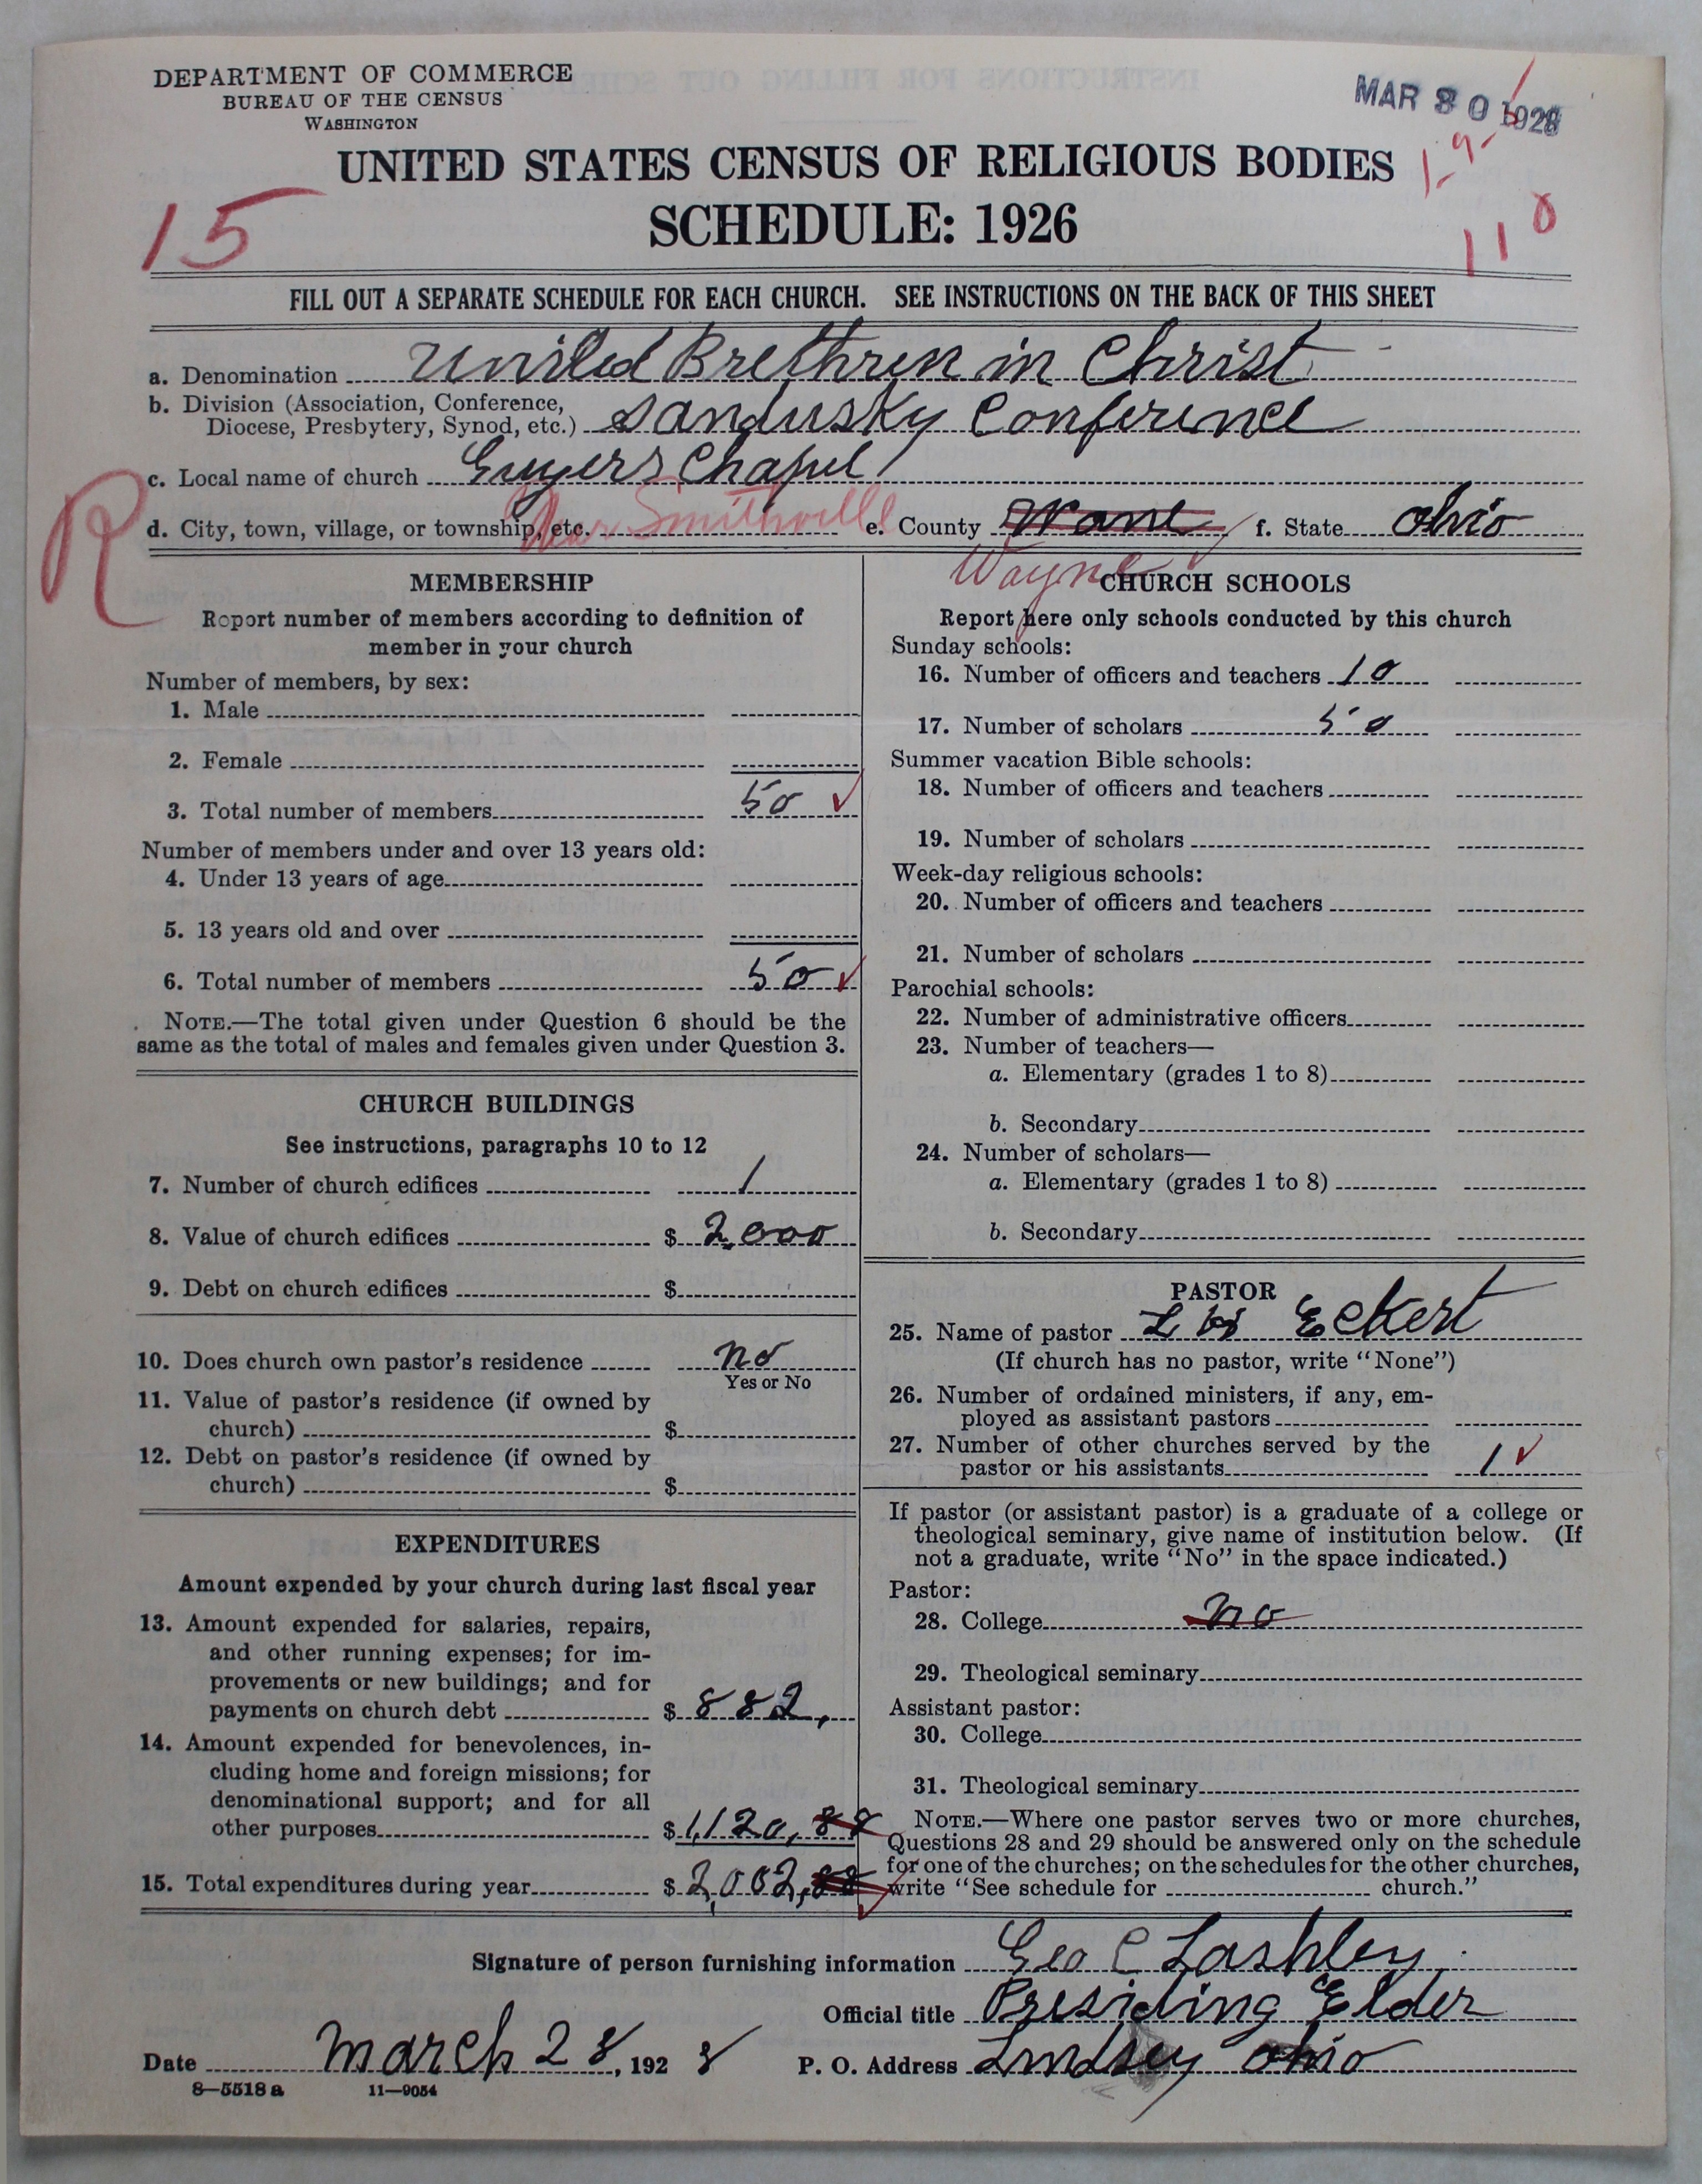 DEPARTMENT OF COMMERCE
BUREAU OF THE CENSUS
WASHINGTON
MAR 30 1928
UNITED STATES CENSUS OF RELIGIOUS BODIES
SCHEDULE: 1926
15
1-9-
110
FILL OUT A SEPARATE SCHEDULE FOR EACH CHURCH. SEE INSTRUCTIONS ON THE BACK OF THIS SHEET
a. Denomination United Brethren in Christ
b. Division (Association, Conference,
Diocese, Presbytery, Synod, etc.) Sandusky Conference
c. Local name of church Guyers Chapel
R
d. City, town, village, or township, etc. Near Smithville e. County Wane f. State Ohio
Wayne
MEMBERSHIP
Report number of members according to definition of
member in your church
Number of members, by sex:
1. Male
2. Female
3. Total number of members 50 ✓
Number of members under and over 13 years old:
4. Under 13 years of age
5. 13 years old and over
6. Total number of members 50 ✓
NOTE.—The total given under Question 6 should be the
same as the total of males and females given under Question 3.
CHURCH BUILDINGS
See instructions, paragraphs 10 to 12
7. Number of church edifices 1
8. Value of church edifices $ 2,000
9. Debt on church edifices $
10. Does church own pastor's residence no
Yes or No
11. Value of pastor's residence (if owned by
church) $
12. Debt on pastor's residence (if owned by
church) $
EXPENDITURES
Amount expended by your church during last fiscal year
13. Amount expended for salaries, repairs,
and other running expenses; for im-
provements or new buildings; and for
payments on church debt $ 882,
14. Amount expended for benevolences, in-
cluding home and foreign missions; for
denominational support; and for all
other purposes $ 1,120,
15. Total expenditures during year $ 2,002,
CHURCH SCHOOLS
Report here only schools conducted by this church
Sunday schools:
16. Number of officers and teachers 10
17. Number of scholars 50
Summer vacation Bible schools:
18. Number of officers and teachers
19. Number of scholars
Week-day religious schools:
20. Number of officers and teachers
21. Number of scholars
Parochial schools:
22. Number of administrative officers
23. Number of teachers—
a. Elementary (grades 1 to 8)
b. Secondary
24. Number of scholars—
a. Elementary (grades 1 to 8)
b. Secondary
PASTOR
25. Name of pastor L W Eckert
(If church has no pastor, write "None")
26. Number of ordained ministers, if any, em-
ployed as assistant pastors
27. Number of other churches served by the
pastor or his assistants 1 ✓
If pastor (or assistant pastor) is a graduate of a college or
theological seminary, give name of institution below. (If
not a graduate, write "No" in the space indicated.)
Pastor:
28. College no
29. Theological seminary
Assistant pastor:
30. College
31. Theological seminary
NOTE.—Where one pastor serves two or more churches,
Questions 28 and 29 should be answered only on the schedule
for one of the churches; on the schedules for the other churches,
write "See schedule for church."
Signature of person furnishing information Geo C Lashley
Official title Presiding Elder
Date March 28, 1928 P. O. Address Lindsey Ohio
8—5518 a 11—9054